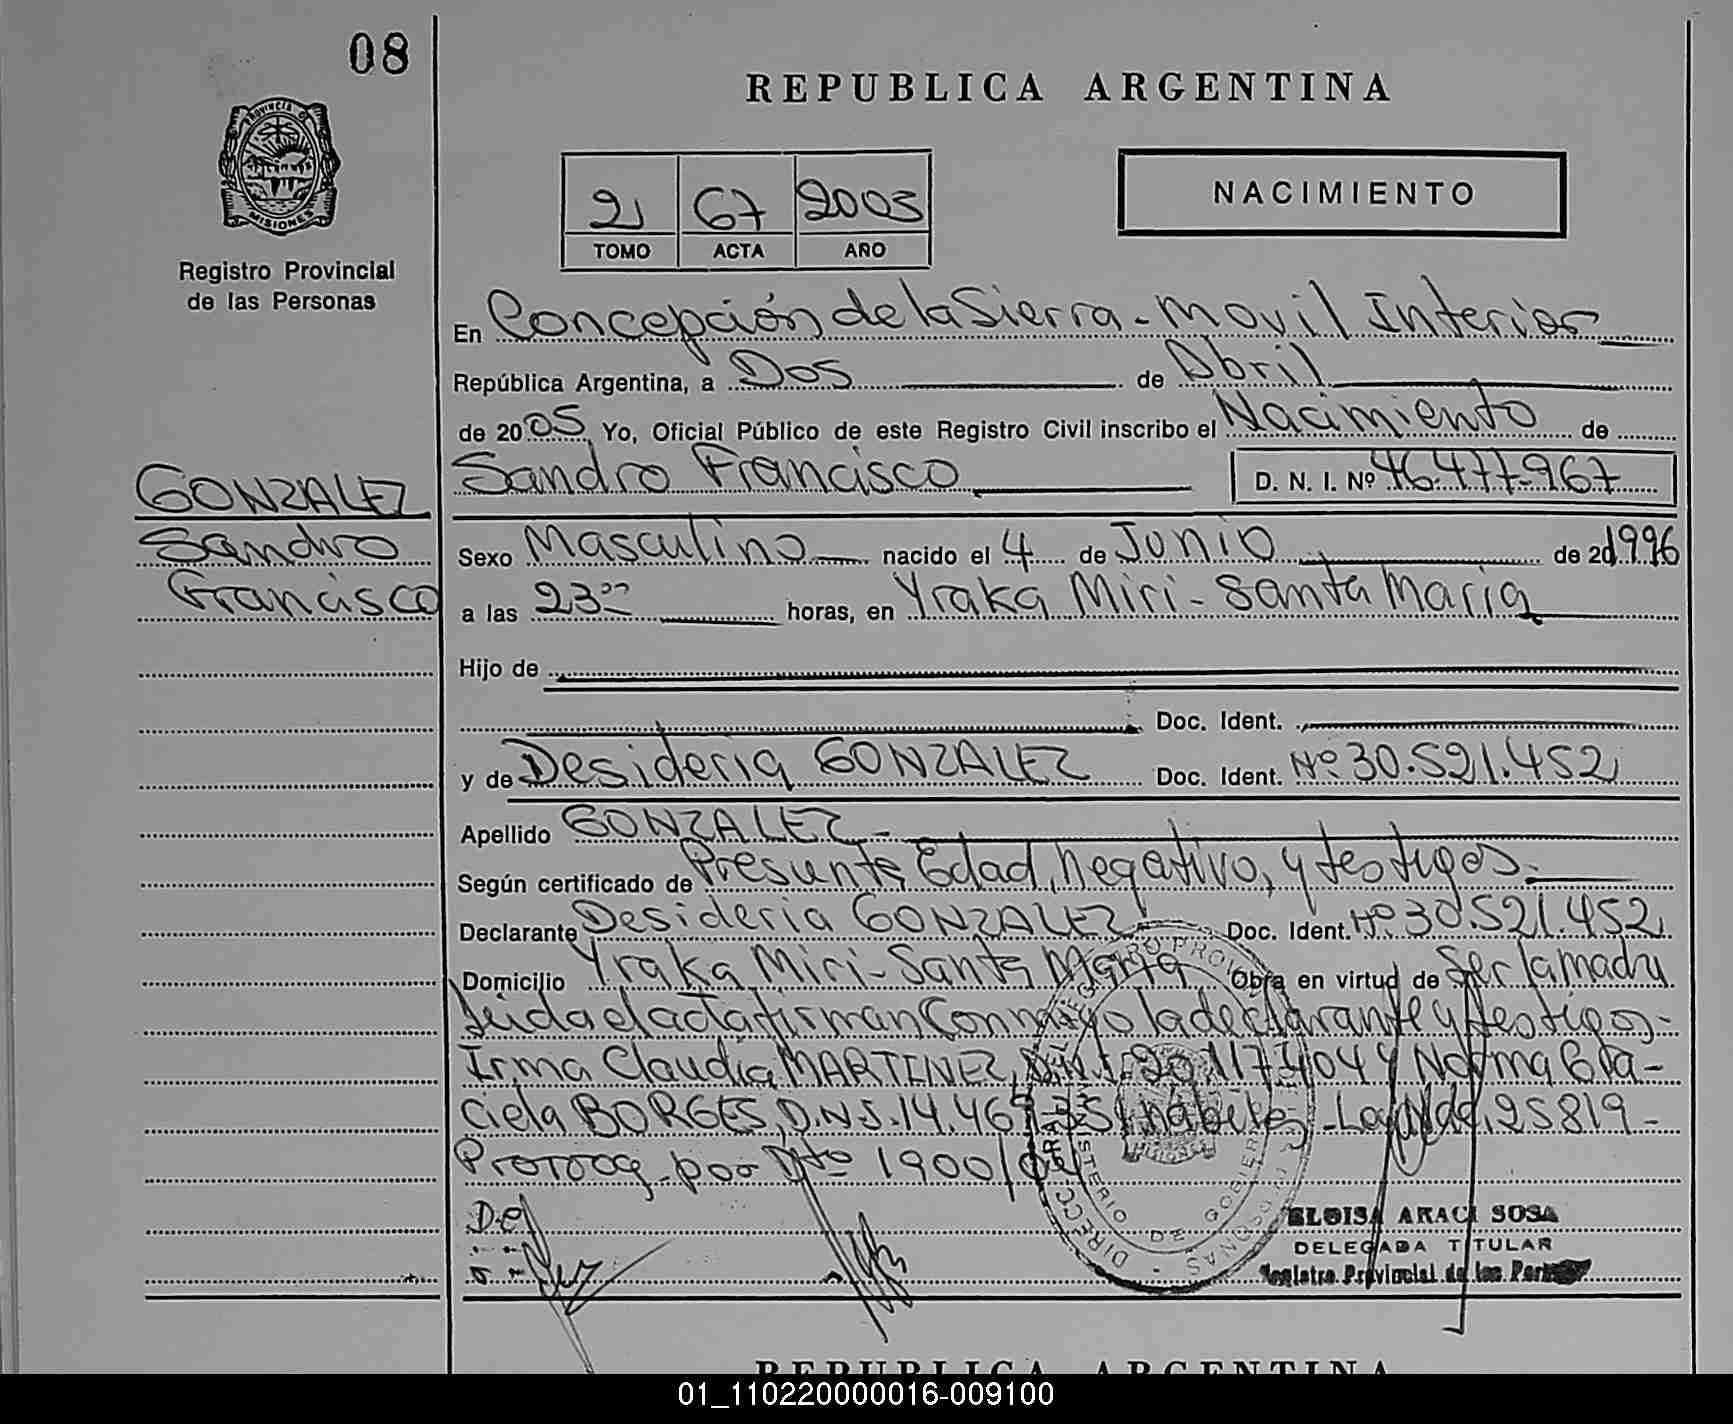 08
PROVINCIA DE
MISIONES
Registro Provincial
de las Personas
REPUBLICA ARGENTINA
2 67 2005
TOMO ACTA AÑO
NACIMIENTO
En Concepción de la Sierra - Movil Interior
República Argentina, a Dos de Abril
de 2005 Yo, Oficial Público de este Registro Civil inscribo el Nacimiento de
GONZALEZ
Sandro
Francisco
Sandro Francisco D. N. I. Nº 46.477.967
Sexo Masculino nacido el 4 de Junio de 201996
a las 23⁰⁰ horas, en Yraka Miri - Santa Maria
Hijo de
Doc. Ident.
y de Desideria GONZALEZ Doc. Ident. Nº 30.521.452
Apellido GONZALEZ -
Según certificado de Presunta Edad, negativo, y testigos.-
Declarante Desideria GONZALEZ. Doc. Ident. Nº 30.521.452
Domicilio Yraka Miri - Santa Maria Obra en virtud de Ser la madre
Leida el acta firman Conmigo la declarante y testigos:
Irma Claudia MARTINEZ, D.N.I. y Norma Gra-
ciela BORGES, D.N.I. habiles - Ley 25819 -
Prorrog. por Dto 1900/04
ELOISA ARACI SOSA
DELEGADA TITULAR
Registro Provincial de las Personas
REPUBLICA ARGENTINA
01_110220000016-009100